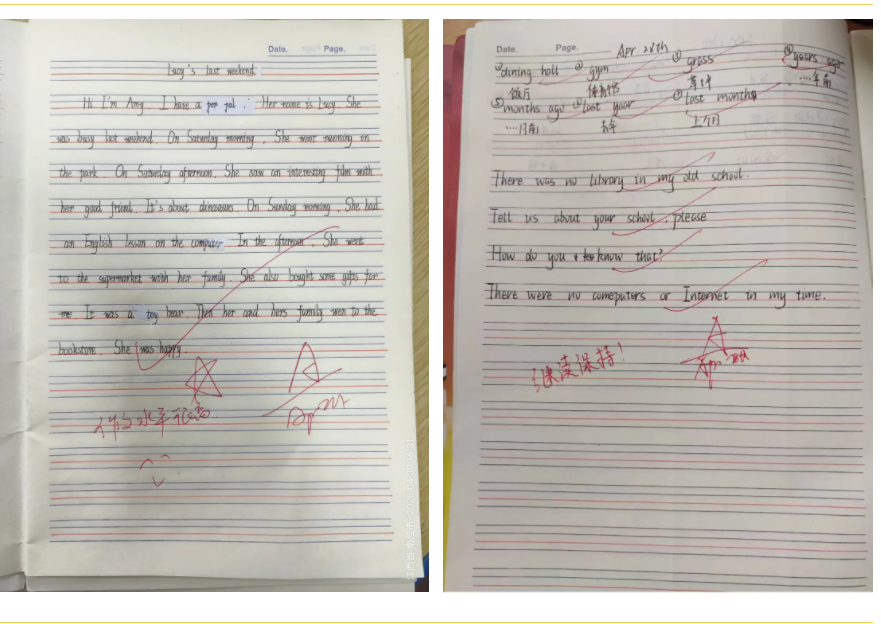 Date. Page.
Lucy's last weekend
Hi I'm Amy. I have a pen pal. Her name is Lucy. She
was busy last weekend. On Saturday morning. She went running in
the park. On Saturday afternoon. She saw an interesting film with
her good friend. It's about dinosaurs. On Sunday morning. She had
an English lesson on the computer. In the afternoon. She went
to the supermarket with her family. She also bought some gifts for
me. It was a toy bear. Then her and hers family wen to the
bookstore. She was happy.
A
作文水平很高
Date. Page. Apr. 28th
①dining hall ② gym ③ grass ④years ago
饭厅 体育馆 草坪 ....年前
⑤months ago ⑥last year ⑦last months
....月前 去年 上个月
There was no library in my old school.
Tell us about your school, please
How do you know that?
There were no comeputers or Internet in my time.
A
继续保持!